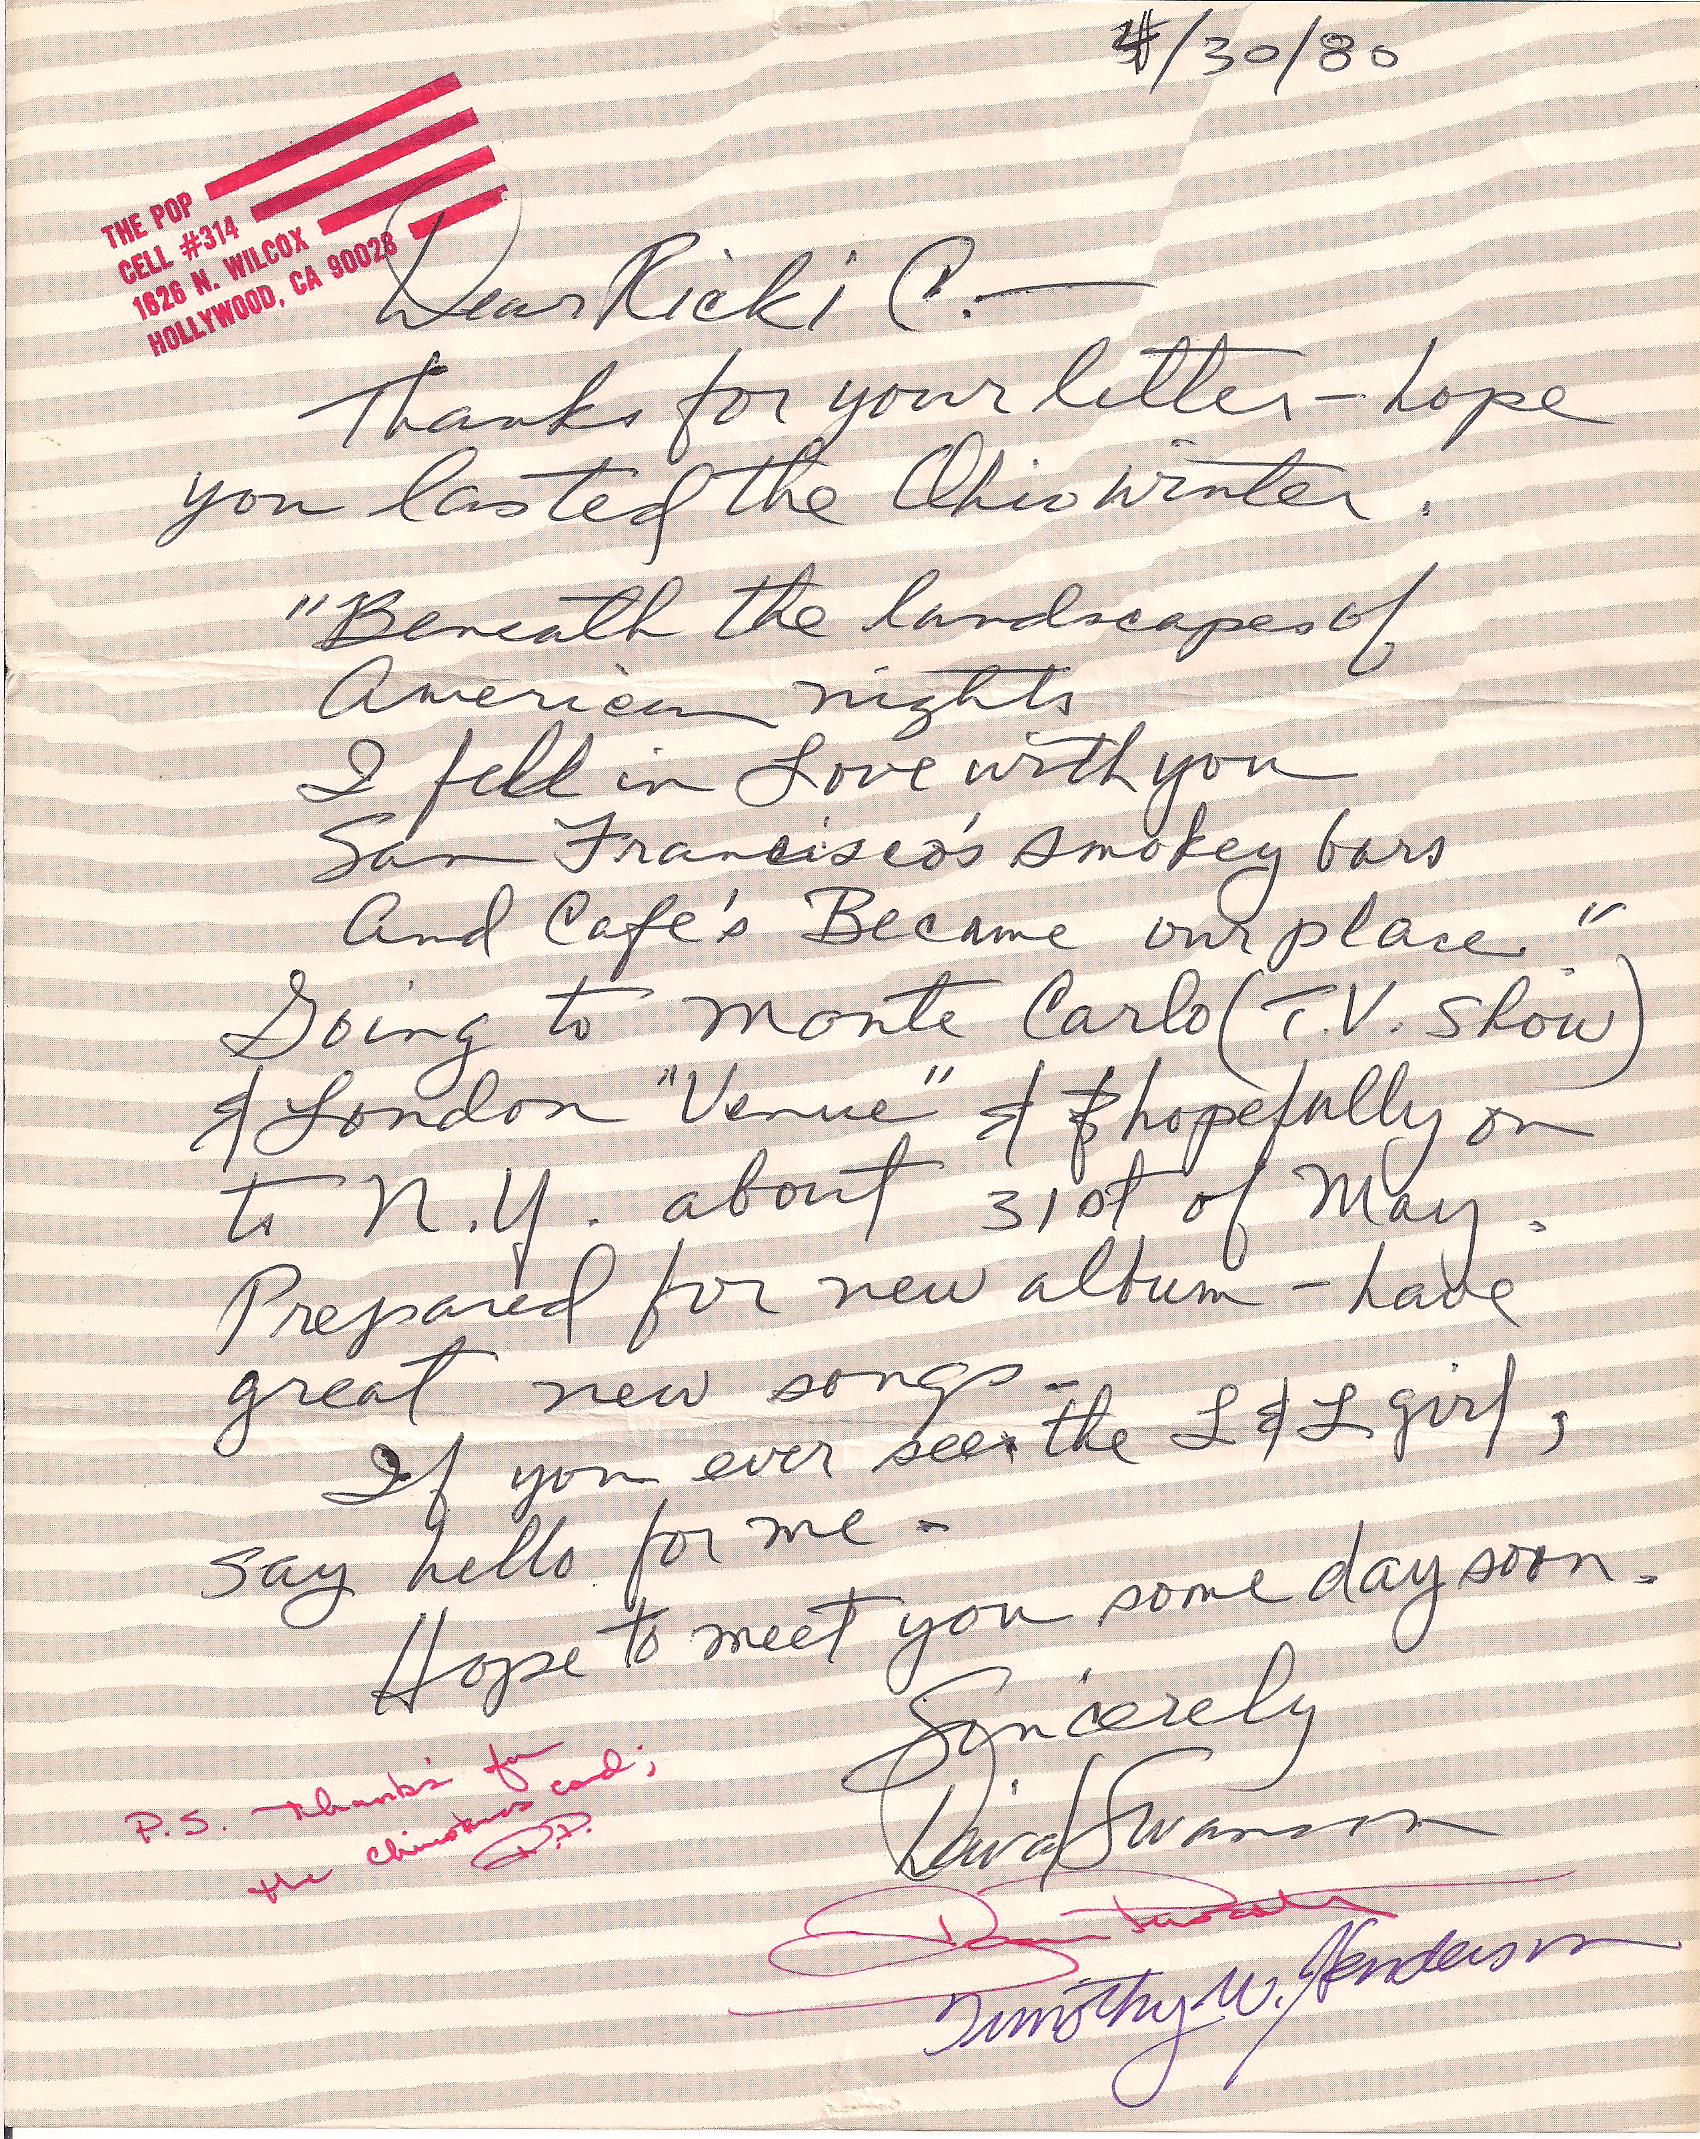 4/30/80
THE POP
CELL #314
1626 N. WILCOX
HOLLYWOOD, CA 90028
Dear Ricki C. —
Thanks for your letter - hope
you lasted the Ohio winter.
"Beneath the landscapes of
American nights
I fell in Love with you
San Francisco's smokey bars
And Cafe's Became our place."
Going to Monte Carlo (T.V. Show)
& London "Venue" & hopefully on
to N.Y. about 31st of May.
Prepared for new album - have
great new songs -
If you ever see the L & L girl,
say hello for me -
Hope to meet you some day soon.
Sincerely
David Swanson
P.S. Thanks for
the christmas card;
Timothy W. Henderson